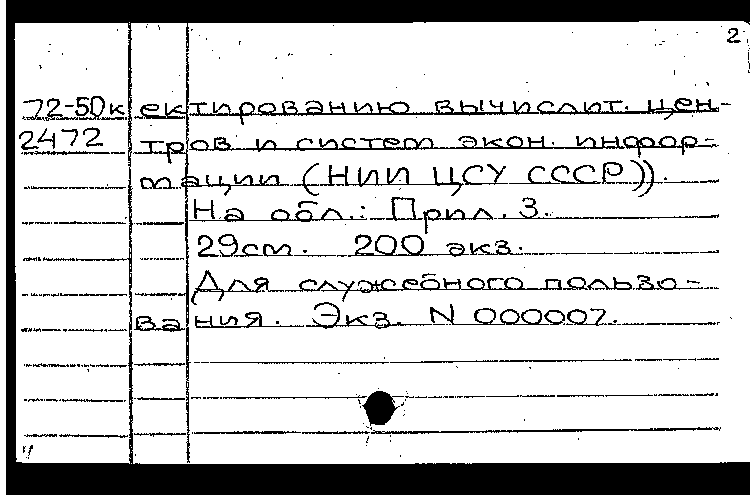 2
72-50к ектированию вычислит. цен-
2472 тров и систем экон. инфор-
мации (НИИ ЦСУ СССР)).
На обл.: Прил. 3.
29см. 200 экз.
Для служебного пользо-
вания. Экз. N 000007.